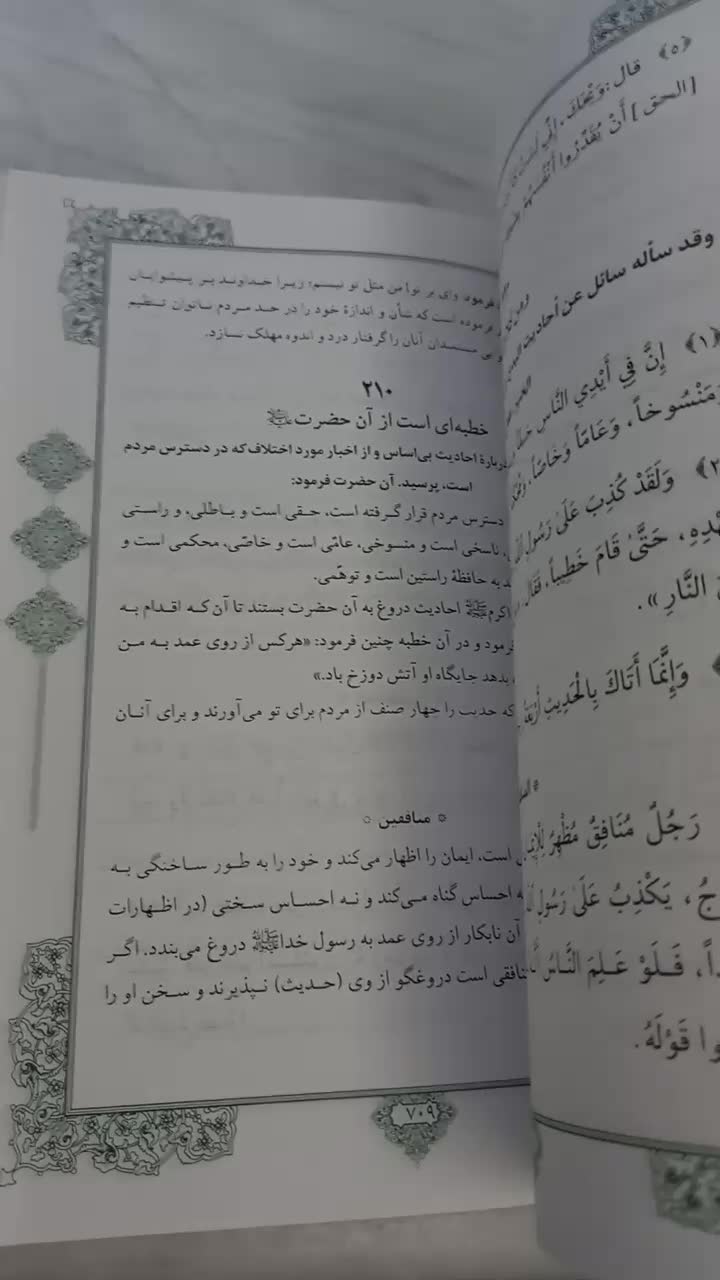 ﴿۵﴾ قال: وَيْحَكَ، إِنِّي
[الحق] أَنْ يُقَدِّرُوا أَنْفُسَهُمْ
وقد سأله سائل عن أحاديث
﴿۱﴾ إِنَّ فِي أَيْدِي النَّاسِ
وَمَنْسُوخاً، وَعَامّاً وَخَاصّاً،
وَلَقَدْ كُذِبَ عَلَىٰ رَسُولِ
حَتَّىٰ قَامَ خَطِيباً، فَقَالَ
النَّارِ».
وَإِنَّمَا أَتَاكَ بِالْحَدِيثِ
رَجُلٌ مُنَافِقٌ مُظْهِرٌ
يَكْذِبُ عَلَىٰ رَسُولِ
فَلَوْ عَلِمَ النَّاسُ
قَوْلَهُ.
فرمود وای بر تو! من مثل تو نیستم؛ زیرا خداوند بر پیشوایان
فرموده است که شأن و اندازهٔ خود را در حد مردم ناتوان تنظیم
مستمندان آنان را گرفتار درد و اندوه مهلک نسازد.
۲۱۰
خطبه‌ای است از آن حضرت ﷺ
دربارهٔ احادیث بی‌اساس و از اخبار مورد اختلاف که در دسترس مردم
است، پرسید. آن حضرت فرمود:
دسترس مردم قرار گرفته است، حقی است و باطلی، و راستی
ناسخی است و منسوخی، عامّی است و خاصّی، محکمی است و
به حافظهٔ راستین است و توهّمی.
اکرم ﷺ احادیث دروغ به آن حضرت بستند تا آن که اقدام به
فرمود و در آن خطبه چنین فرمود: «هرکس از روی عمد به من
بدهد جایگاه او آتش دوزخ باد.»
که حدیث را چهار صنف از مردم برای تو می‌آورند و برای آنان
منافقین
است، ایمان را اظهار می‌کند و خود را به طور ساختگی به
احساس گناه می‌کند و نه احساس سختی (در اظهارات
آن نابکار از روی عمد به رسول خدا ﷺ دروغ می‌بندد. اگر
منافقی است دروغگو از وی (حدیث) نپذیرند و سخن او را
۷۰۹